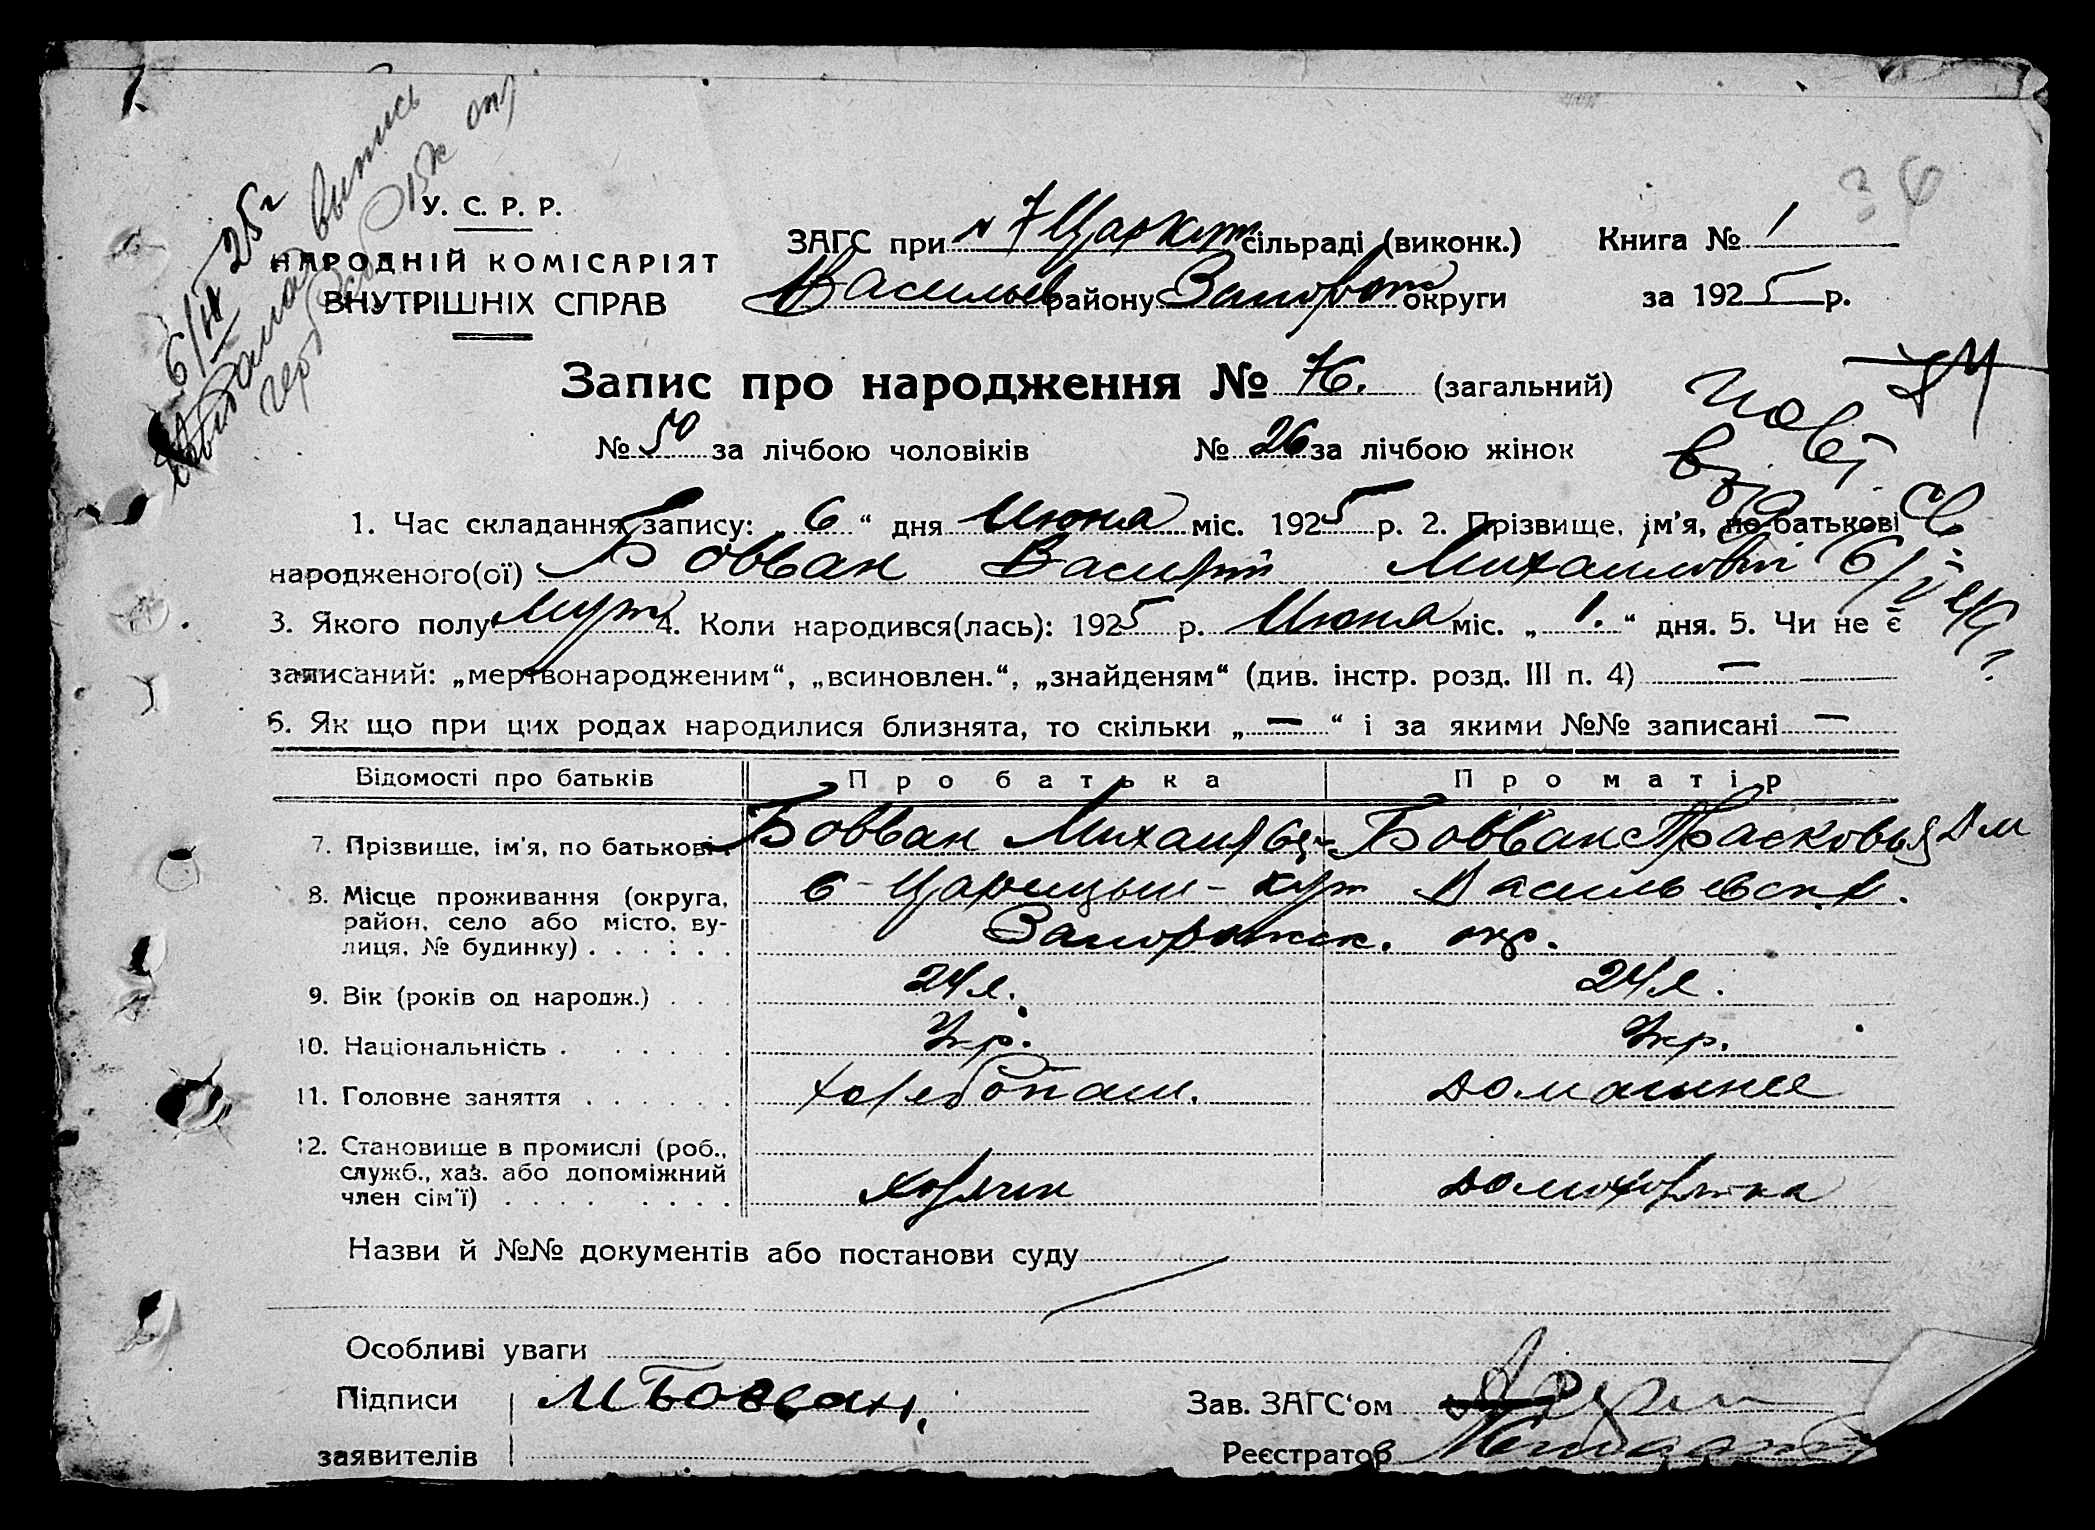 6/IX 25 г
выпись
У. С. Р. Р.
НАРОДНІЙ КОМІСАРІЯТ
ВНУТРІШНІХ СПРАВ
ЗАГС при 7 Царкут сільраді (виконк.)
Васильев району Запорож округи
Книга № 1
за 1925 р.
Запис про народження № 76. (загальний)
№ 50 за лічбою чоловіків № 26 за лічбою жінок
1. Час складання запису: „ 6 “ дня Июня міс. 1925 р. 2. Прізвище, ім'я, по батькові
народженого(ої) Бовван Василий Михайлович
3. Якого полу муж 4. Коли народився(лась): 1925 р. Июня міс. „ 1. “ дня. 5. Чи не є
записаний: „мертвонародженим“, „всиновлен.“, „знайденям“ (див. інстр. розд. III п. 4) —
6. Як що при цих родах народилися близнята, то скільки „ — “ і за якими №№ записані —
Відомості про батьків Про батька Про матір
7. Прізвище, ім'я, по батькові . Бовван Михаил Бовван Прасковья
8. Місце проживання (округа, район, село або місто, вулиця, № будинку) . . . . . . с-Царицын-кут Васильевск.
Запорожск. окр.
9. Вік (років од народж.) . . . 24 л. 24 л.
10. Національність . . . . . . Укр. Укр.
11. Головне заняття . . . . . . хлебопаш. домашнее
12. Становище в промислі (роб.,
служб., хаз. або допоміжний
член сім'ї) . . . . . . . . хозяин домохозяйка
Назви й №№ документів або постанови суду
Особливі уваги
Підписи М Бовван. Зав. ЗАГС'ом
заявителів Реєстратор